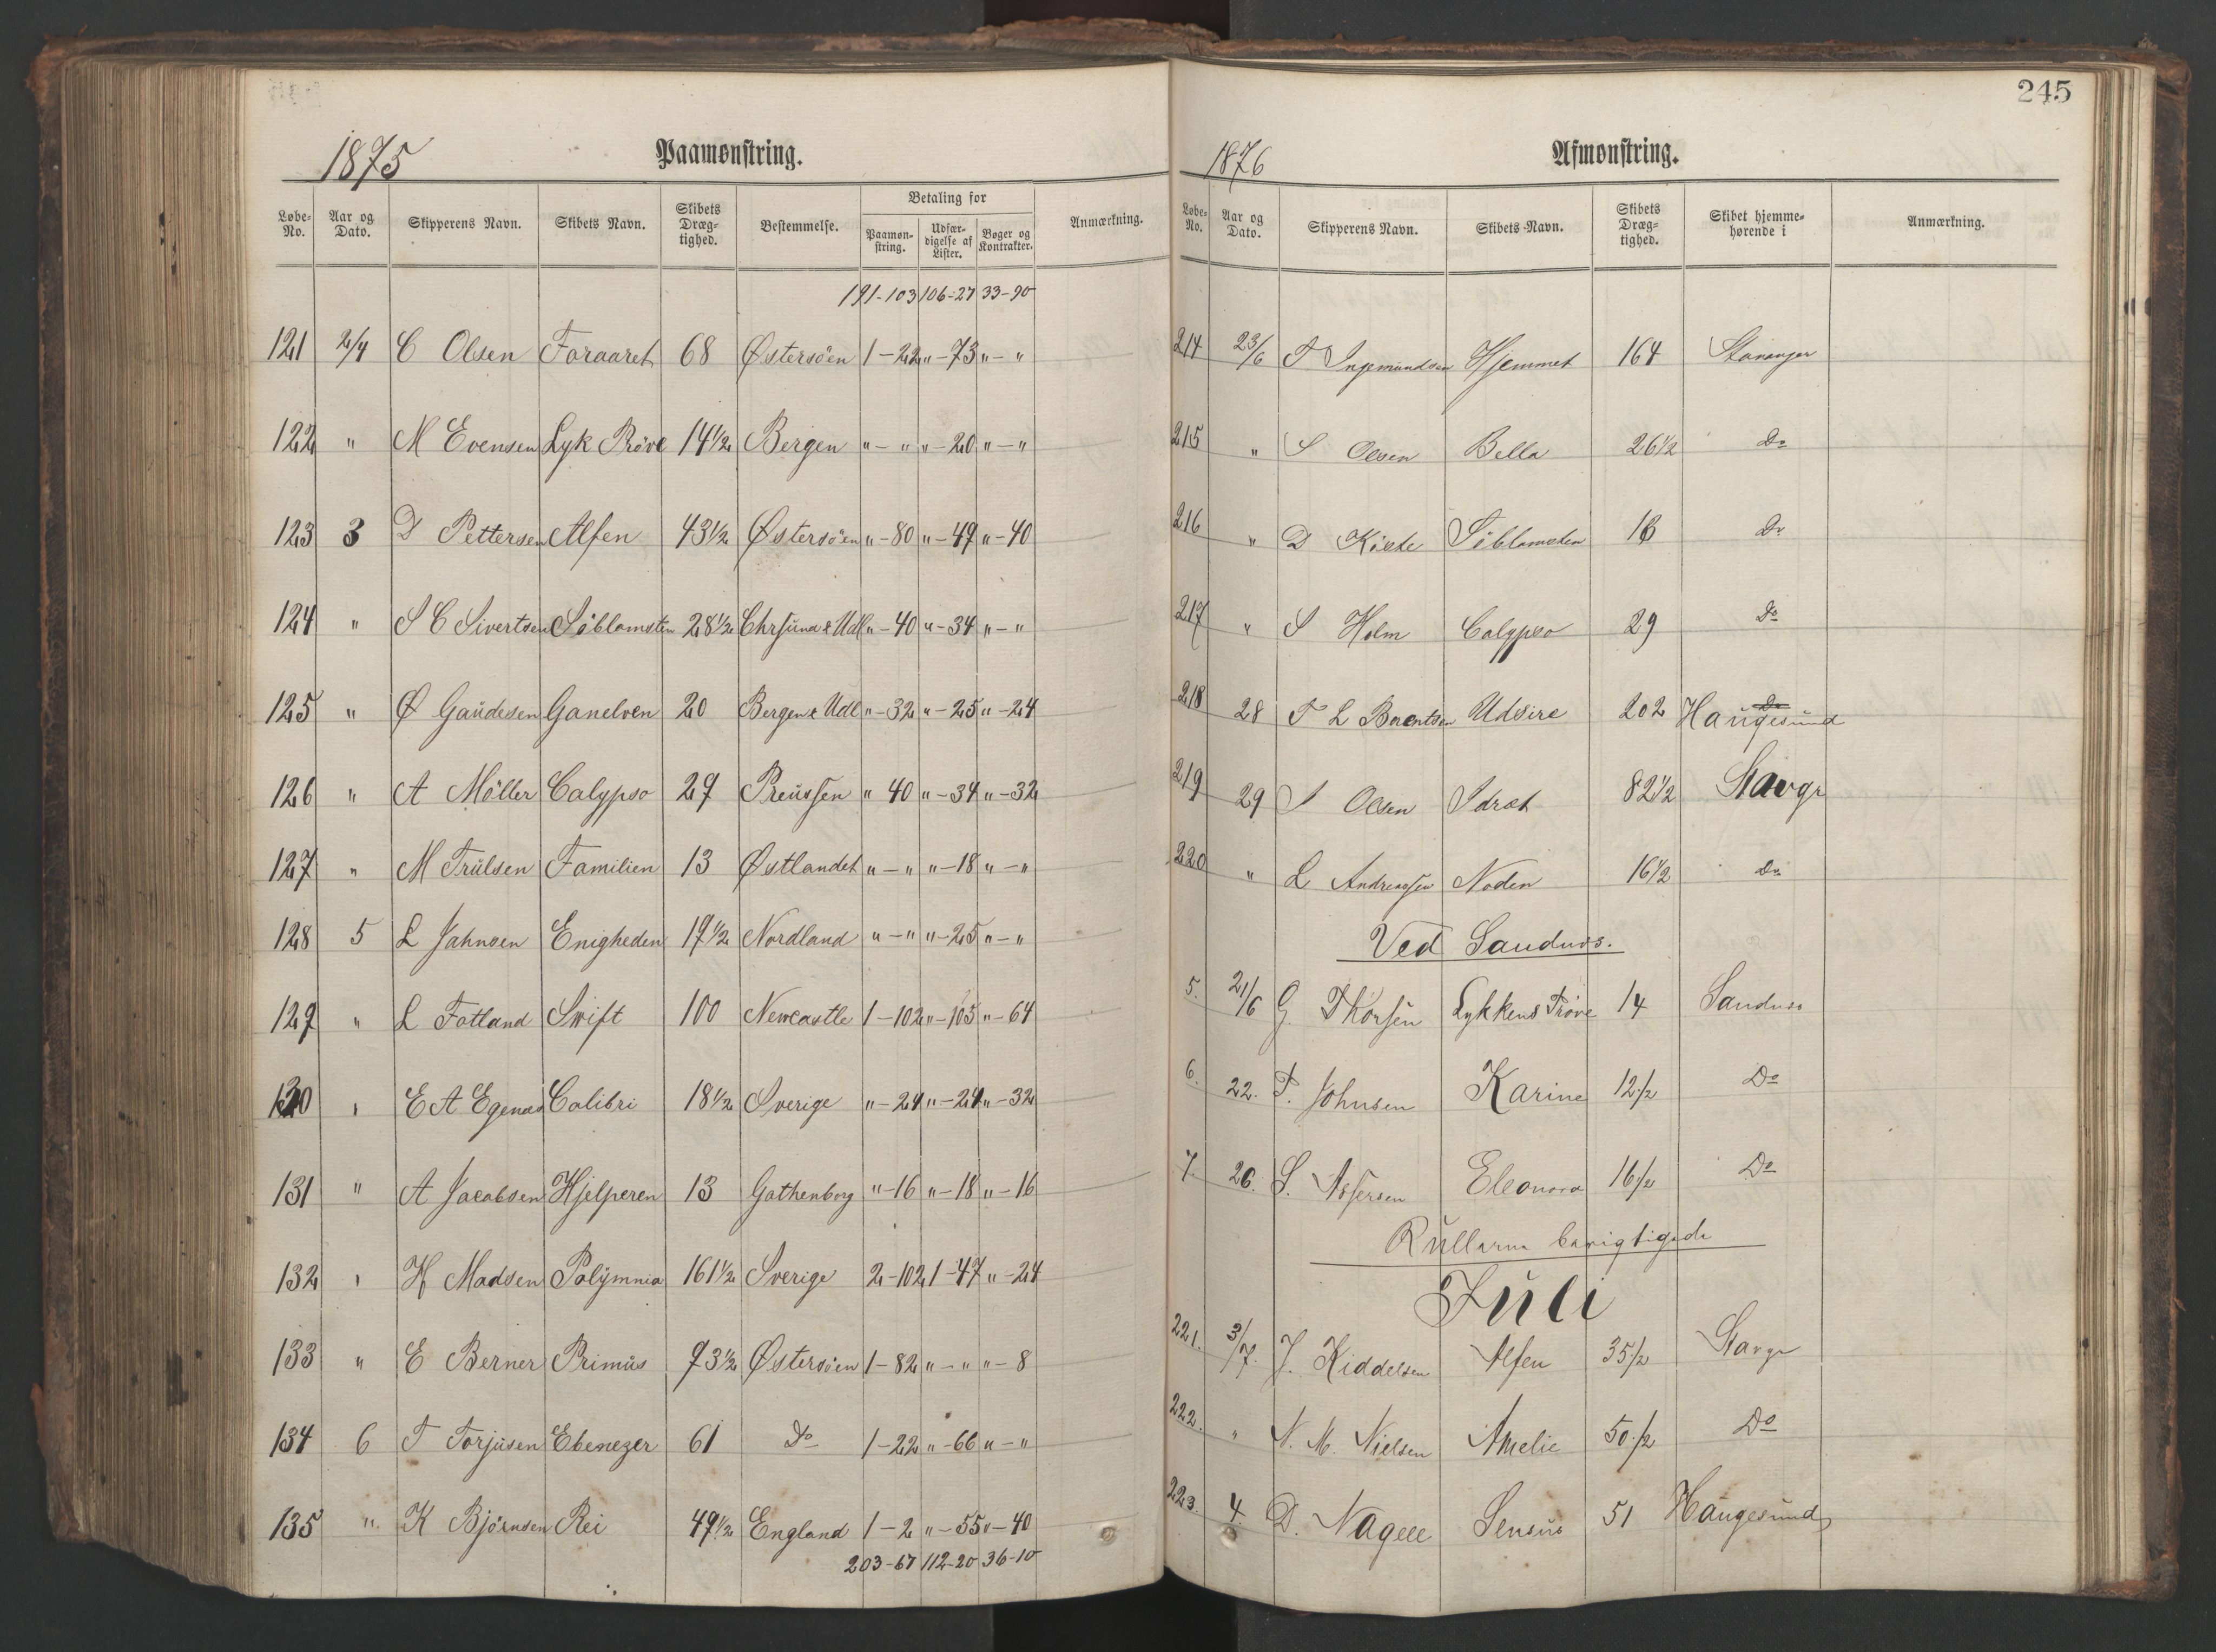 1875 Paamønstring.
Løbe-No. Aar og Dato. Skipperens Navn. Skibets Navn. Skibets Dræg-tighed. Bestemmelse. Betaling for Paamøn-string. Udfær-digelse af Lister. Bøger og Kontrakter. Anmærkning.
191-103 106-27 33-90
121 2/4 C Olsen Foraaret 68 Østersöen 1-22 "-73 "-"
122 " M Evensen Lyk Pröve 14 1/2 Bergen "-" "-20 "-"
123 3 D Pettersen Alfen 43 1/2 Østersöen "-80 "-49 "-40
124 " S C Sivertsen Söblomsten 28 1/2 Chrsund & Udl "-40 "-34 "-"
125 " Ø Gaudesen Ganelven 20 Bergen & Udl "-32 "-25 "-24
126 " A Möller Calypso 29 Preussen " 40 "-34 "-32
127 " M Trulsen Familien 13 Østlandet "-" "-18 "-"
128 5 L Jahnsen Enigheden 19 1/2 Nordland "-" "-25 "-"
129 " L Fotland Swift 100 Newcastle 1-102 "-105 "-64
130 " E A Egenæs Colibri 18 1/2 Sverige "-24 "-24 "-32
131 " A Jacobsen Hjelperen 13 Gothenborg "-16 "-18 "-16
132 " H Madsen Polymnia 161 1/2 Sverige 2-102 1-47 "-24
133 " E Berner Primus 93 1/2 Østersöen 1-82 "-" "-8
134 6 T Torjusen Ebenezer 61 Do 1-22 "-66 "-"
135 " K Björnsen Rei 49 1/2 England 1-2 "-55 "-40
203-67 112-20 36-10
245
1876 Afmønstring.
Løbe-No. Aar og Dato. Skipperens Navn. Skibets Navn. Skibets Dræg-tighed. Skibet hjemme-hørende i Anmærkning.
214 23/6 T Ingemundsen Hjemmet 164 Stavanger
215 " S Olsen Bella 26 1/2 Do
216 " D Söblomsten 18 Do
217 " S Holm Calypso 29 Do
218 28 T L Baentsen Udsire 202 Haugesund
219 29 S Olsen Idræt 82 1/2 Stavgr
220 " L Andreassen Noden 16 1/2 Do
Ved Sandnæs.
5. 21/6 G. Thorsen Lykkens Pröve 14 Sandnæs
6. 22. T. Johnsen Karine 12 1/2 Do
7. 26. S. Assersen Eleonora 16 1/2 Do
Rullerne berigtigede
Juli
221. 3/7. J. Kiddelsen Alfen 35 1/2 Stavgr
222. " N. M. Nielsen Amelie 50 1/2 Do
223. 4 D. Nagell Sensus 51 Haugesund